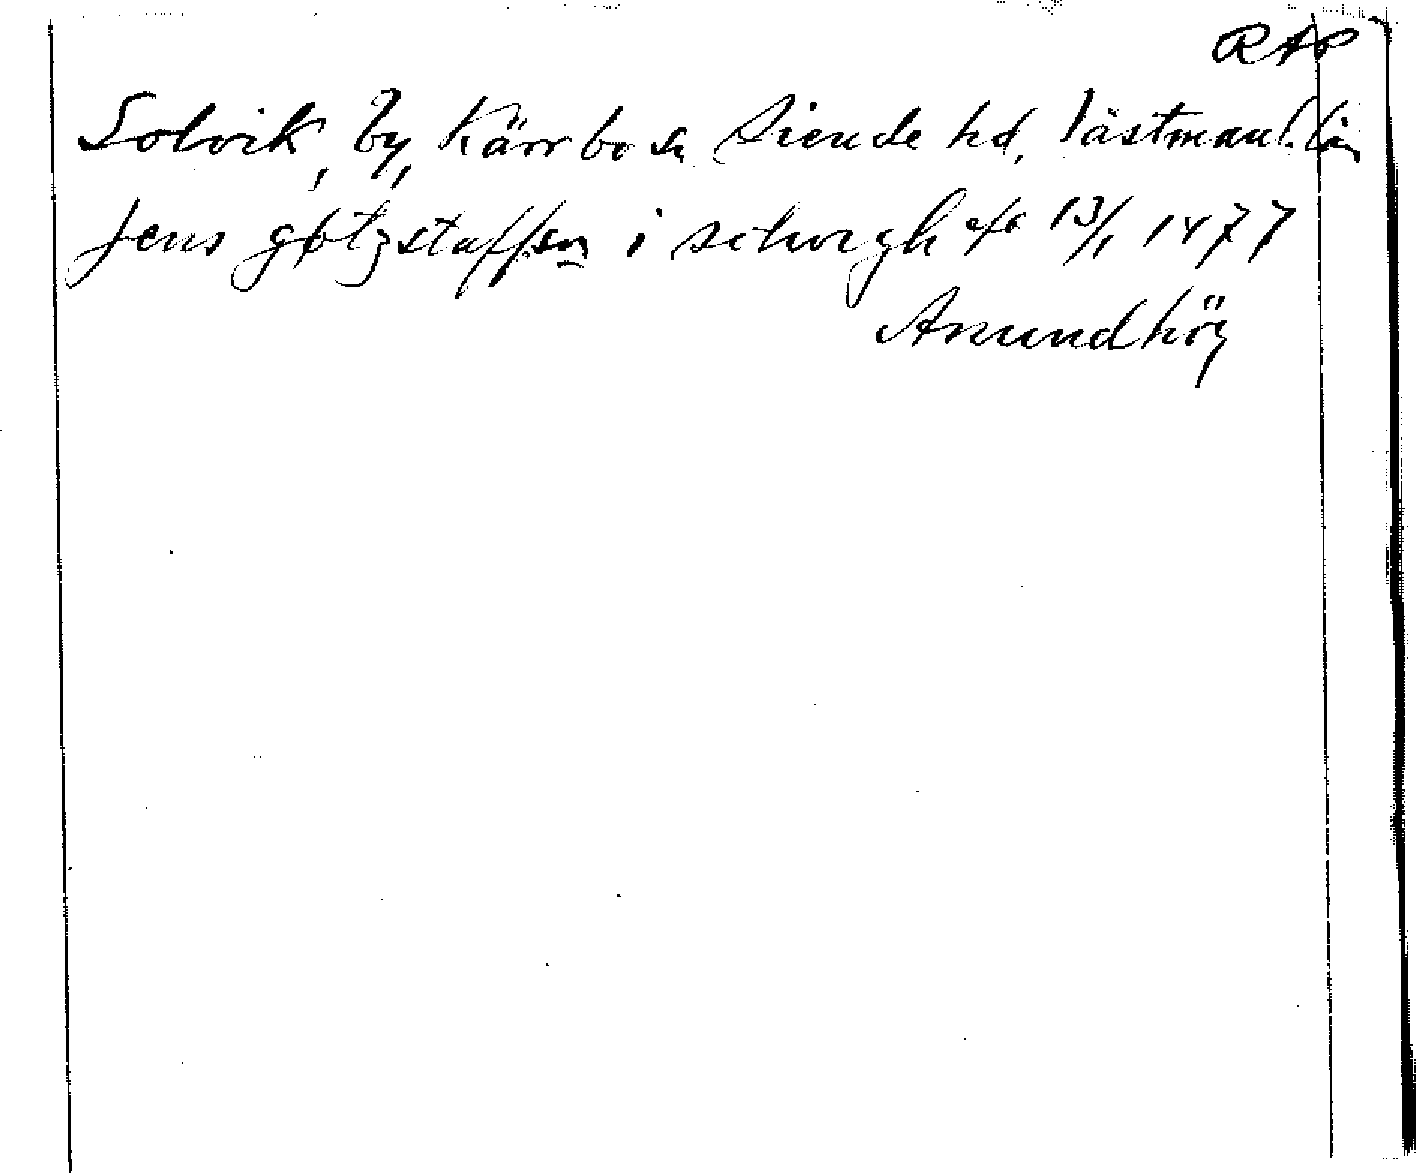 RAP
Solvik, by, Kärrbo sn Siende hd, Västmanl. län
Jens gøtzstaffson i solwegh 13/1 1477
Anundhög